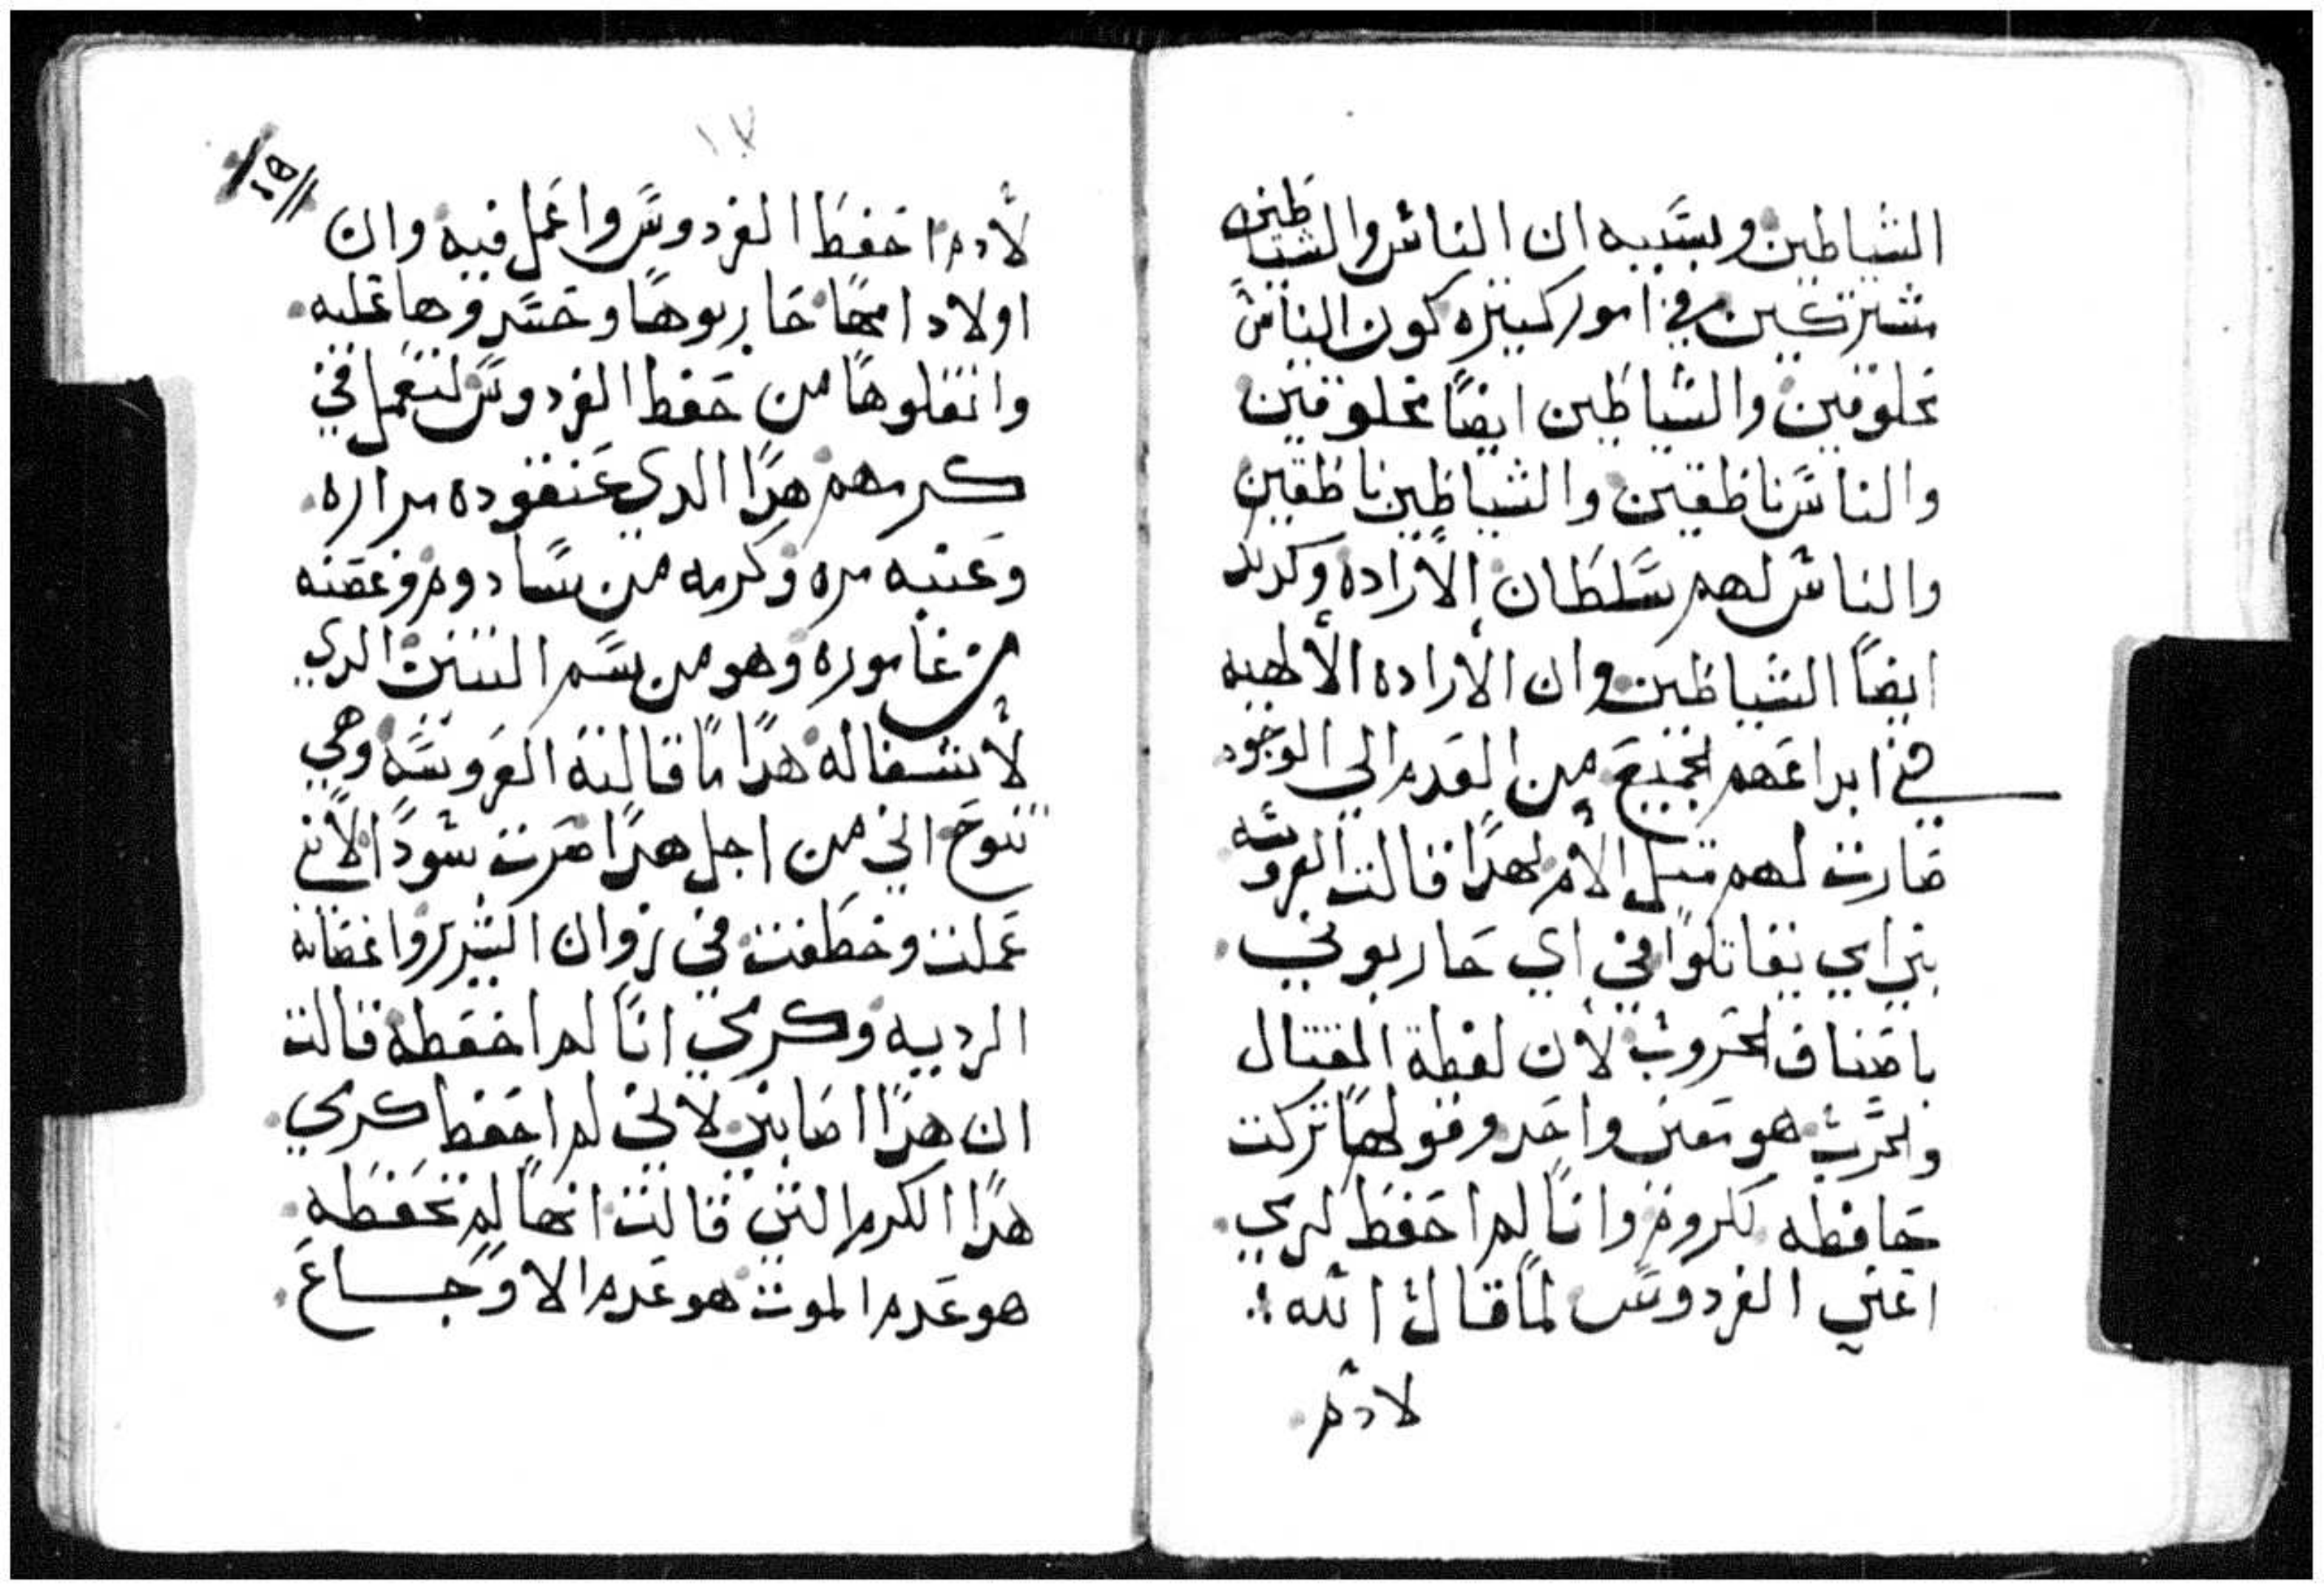 الشياطين وبسببه ان الناس والشياطين
مشتركين في امور كتيره كون الناس
مخلوقين والشياطين ايضا مخلوقين
والناس ناطقين والشياطين ناطقين
والناس لهم سلطان الاراده وكدلك
ايضا الشياطين وان الاراده الالهيه
في ابداعهم الجميع من العدم الي الوجود
صارت لهم متل الام لهدا قالت العروسه
بني امي يقاتلوا في اي حاربوني
باصناف الحروب لان لفظة القتال
والحرب هو معني واحد وقولها تركت
حافظه كروم وانا لم احفظ كرمي
اعني الفردوس لما قال الله
لادم
١٧
لادم احفظ الفردوس واعمل فيه وان
اولاد امها حاربوها وحسدوها عليه
وانقلوها من حفظ الفردوس لتعمل في
كرمهم هدا الدي عنقوده مراره
وعنبه مره وكرمه من سادوم وغصنه
من غاموره وهو من سم التنين الدي
لا شفا له هدا ما قالته العروسه وهي
تنوح اني من اجل هدا صرت سودا لاني
عملت وخطفت في زوان الشرير واغصانه
الرديه وكرمي انا لم احفظه قالت
ان هدا اصابني لاني لم احفظ كرمي
هدا الكرم التي قالت انها لم تحفظه
هو عدم الموت هو عدم الاوجاع